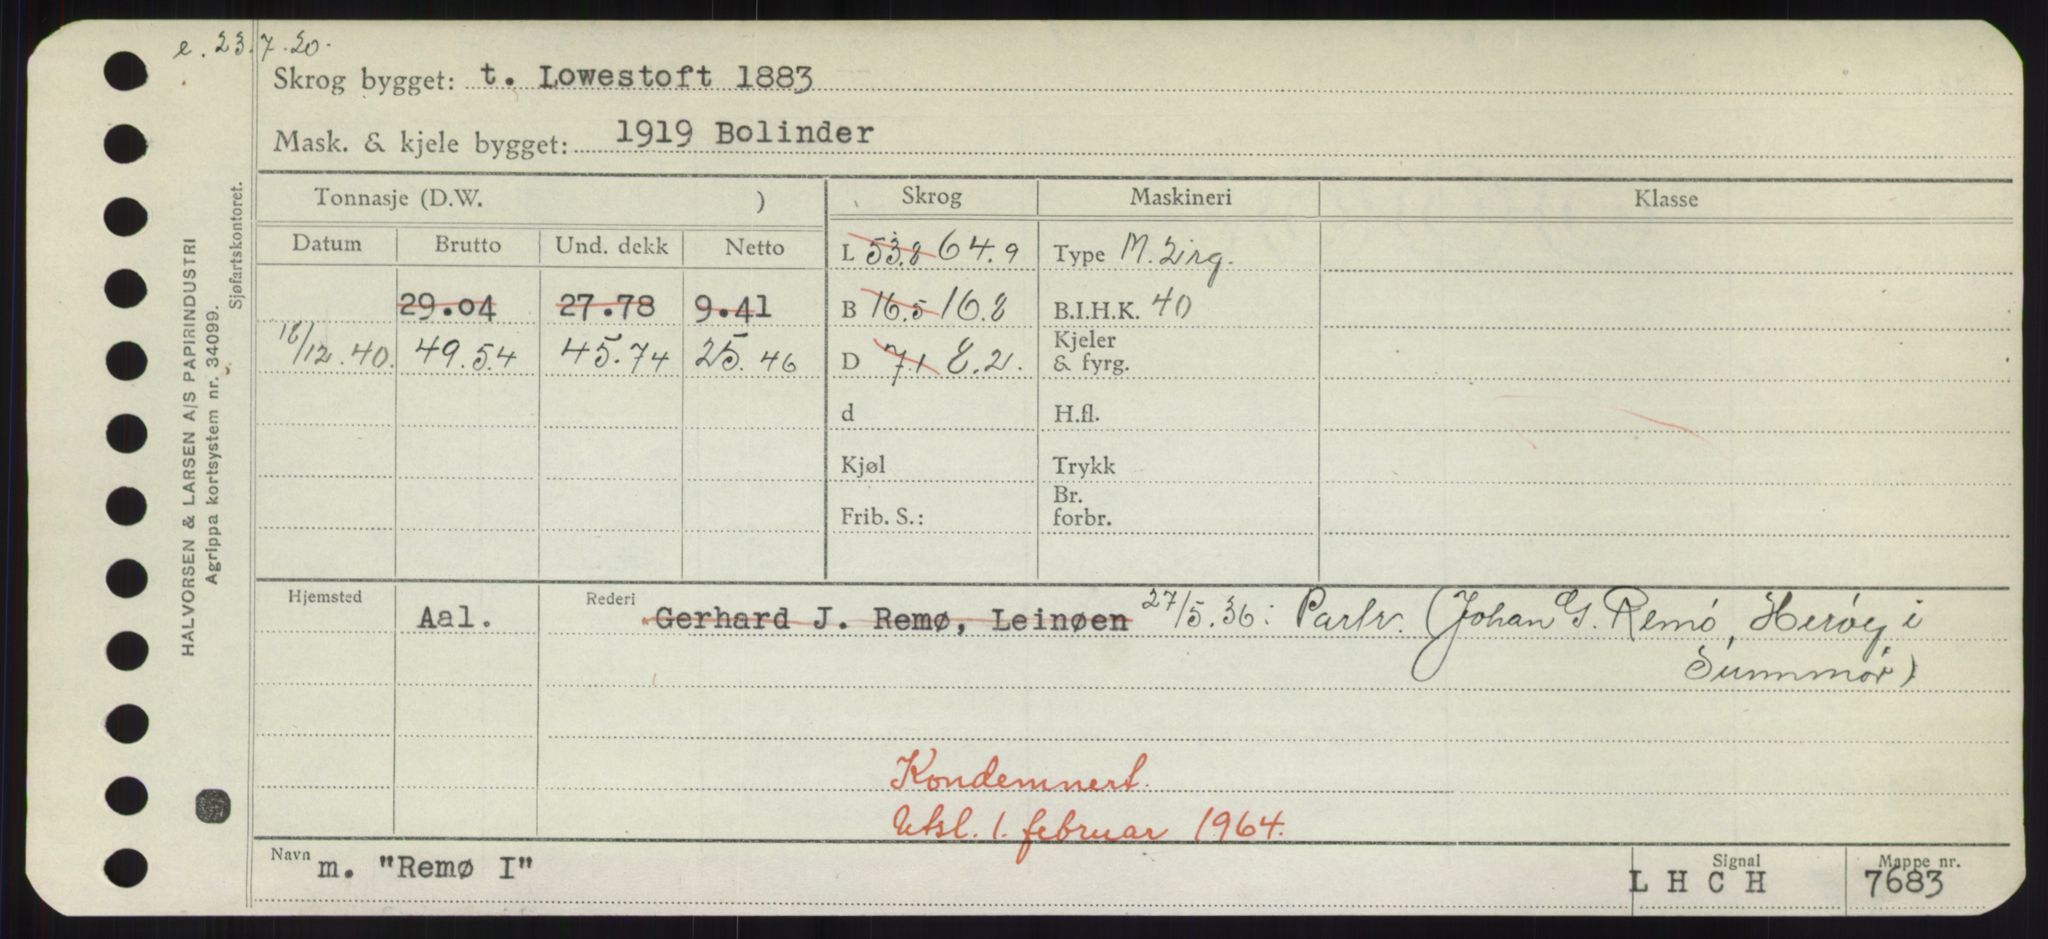 e. 23.7.20.
Skrog bygget: t. Lowestoft 1883
Mask. & kjele bygget: 1919 Bolinder
Tonnasje (D.W. ) Skrog Maskineri Klasse
Datum Brutto Und. dekk Netto L 53.8 64.9 Type M. 2irg.
29.04 27.78 9.41 B 16.5 16.8 B.I.H.K. 40
18/12.40. 49.54 45.74 25.46 D 7.1 8.2. Kjeler & fyrg.
d H.fl.
Kjøl Trykk
Frib. S.: Br. forbr.
Hjemsted Aal. Rederi Gerhard J. Remø, Leinøen 27/5.36: Partr. (Johan G. Remö, Heröy i
Sunnmør)
Kondemnert.
Utsl. 1. februar 1964.
Navn m. "Remø I" Signal L H C H Mappe nr. 7683
HALVORSEN & LARSEN A/S PAPIRINDUSTRI
Agrippa kortsystem nr. 34099.
Sjøfartskontoret.